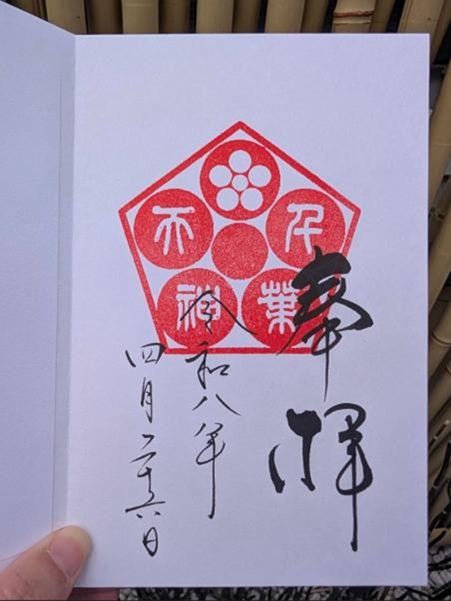 奉拝
千葉
天神
令和八年
四月二十六日